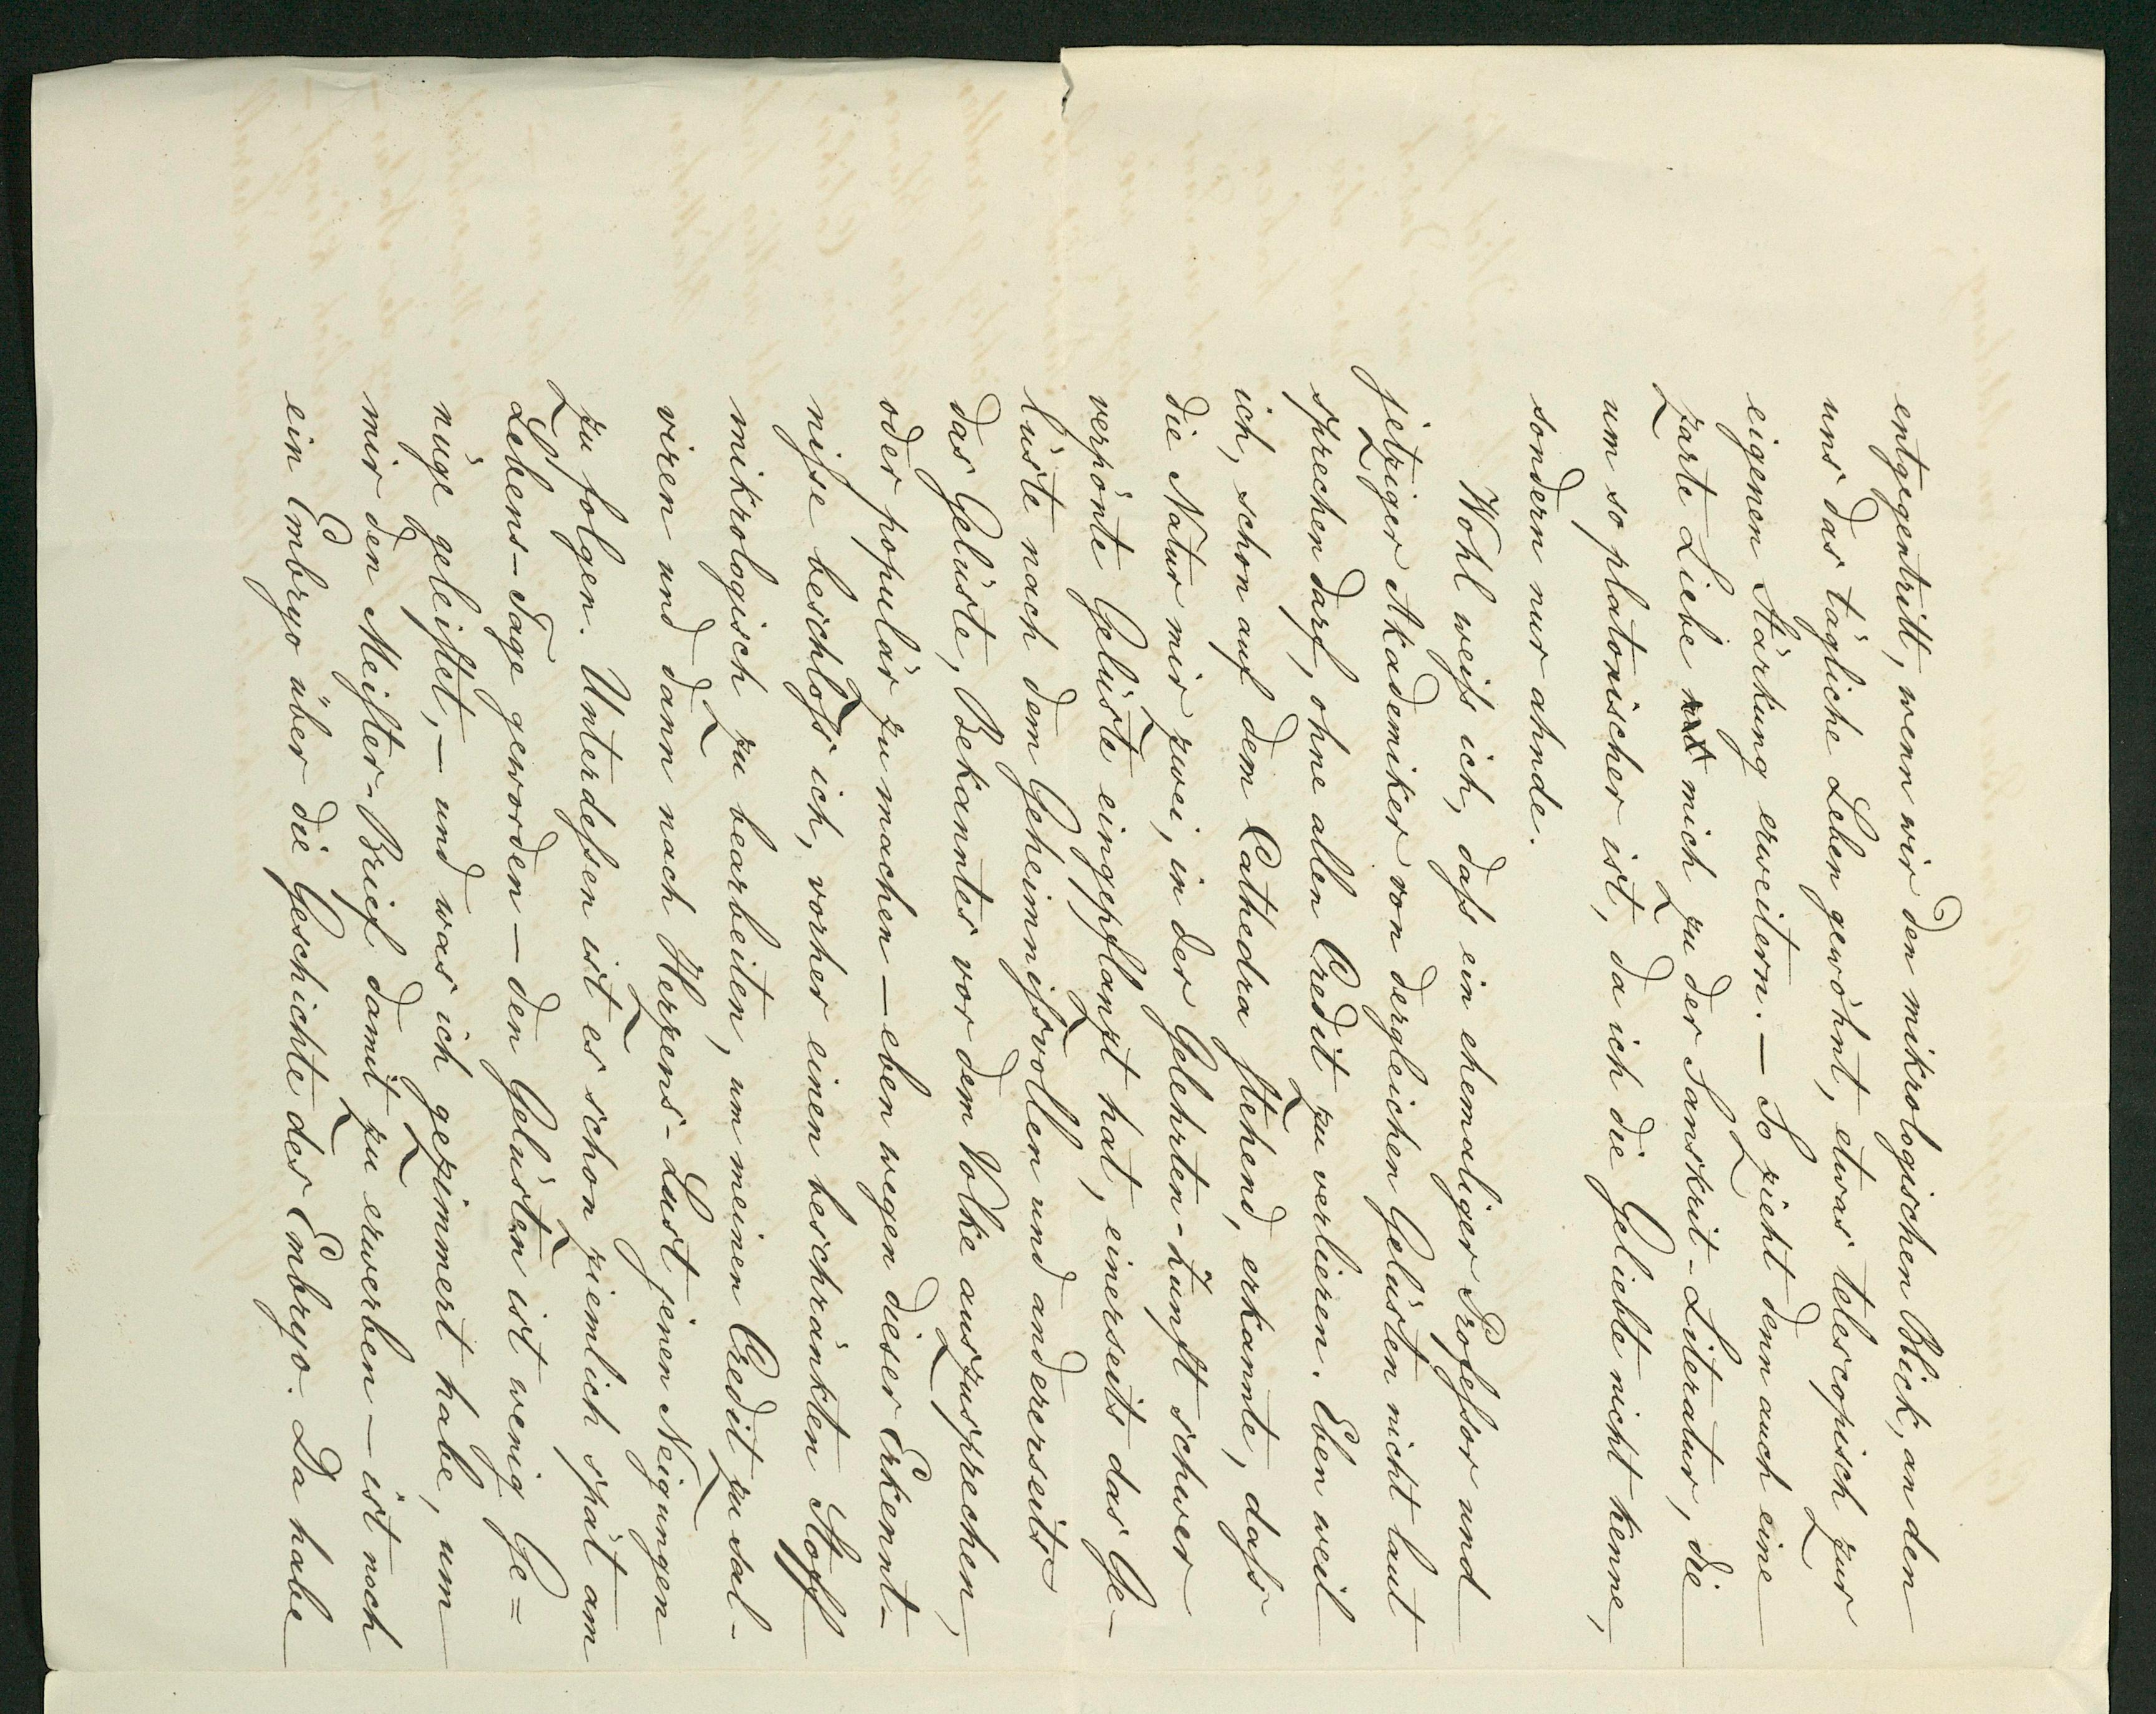 entgegentritt, wenn wir den mikrologischen Blick, an den
uns das tägliche Leben gewöhnt, etwas telescopisch zur
eigenen Stärkung erweitern. — So zieht denn auch eine
zarte Liebe mich zu der Sanskrit-Literatur, die
um so platonischer ist, da ich die Geliebte nicht kenne,
sondern nur ahnde.
Wohl weiß ich, daß ein ehemaliger Profeßor und
jetziger Akademiker von dergleichen Gelüsten nicht laut
sprechen darf, ohne allen Credit zu verlieren. Eben weil
ich, schon auf dem Cathedra stehend, erkannte, daß
die Natur mir zwei, in der Gelehrten-Zunft schwer
verpönte Gelüste eingepflanzt hat, einerseits das Ge-
lüste nach dem Geheimnißvollen und andererseits
das Gelüste, Bekanntes vor dem Volke auszusprechen,
oder populär zu machen — eben wegen dieser Erkennt-
niße beschloß ich, vorher einen beschränkten Stoff
mikrologisch zu bearbeiten, um meinen Credit zu sal-
viren und dann nach Herzens-Lust jenen Neigungen
zu folgen. Unterdeßen ist es schon ziemlich spät am
Lebens-Tage geworden — den Gelüsten ist wenig Ge=
nüge geleistet, — und was ich gezimmert habe, um
mir den Meister-Brief damit zu erwerben — ist noch
ein Embryo über die Geschichte des Embryo. Da habe